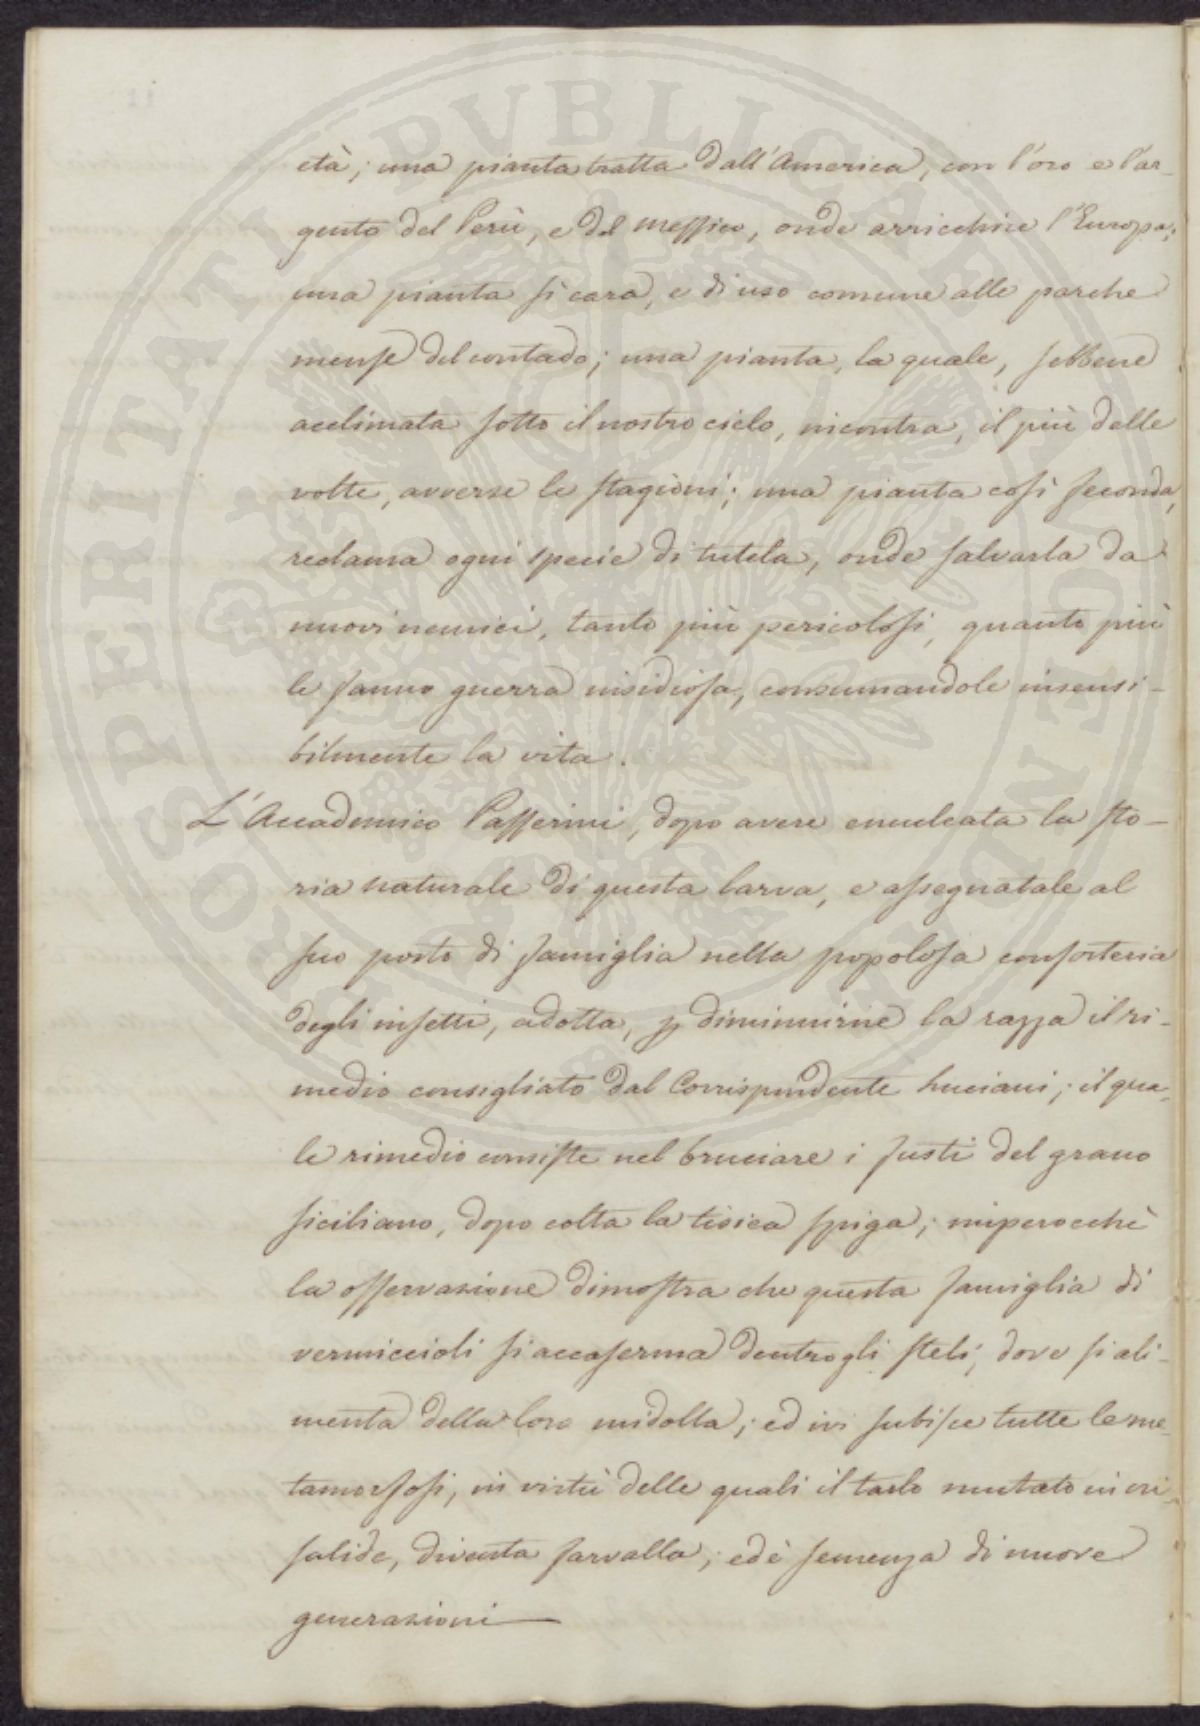 PROSPERITATI PVBLICAE AVGENDAE
età; una pianta tratta dall'America, con l'oro e l'ar-
gento del Perù, e del Messico, onde arricchire l'Europa;
una pianta sì cara, e di uso comune alle parche
mense del contado; una pianta, la quale, sebbene
aclimata sotto il nostro cielo, incontra, il più delle
volte, avverse le stagioni; una pianta così feconda,
reclama ogni specie di tutela, onde salvarla da
nuovi nemici, tanto più pericolosi, quanto più
le fanno guerra insidiosa, consumandole insensi-
bilmente la vita.
L'Accademico Passerini, dopo avere enucleata la sto-
ria naturale di questa larva, e assegnatale al
suo posto di famiglia nella popolosa consorteria
degli insetti, adotta, p diminuirne la razza il ri-
medio consigliato dal Corrispondente Luciani; il qua-
le rimedio consiste nel bruciare i fusti del grano
siciliano, dopo colta la tisica spiga; imperocchè
la osservazione dimostra che questa famiglia di
vermiccioli si accaserma dentro gli steli, dove si ali-
menta della loro midolla; ed ivi subisce tutte le me-
tamorfosi, in virtù delle quali il tarlo mutato in cri-
salide, diventa farvalla; ed è semenza di nuove
generazioni